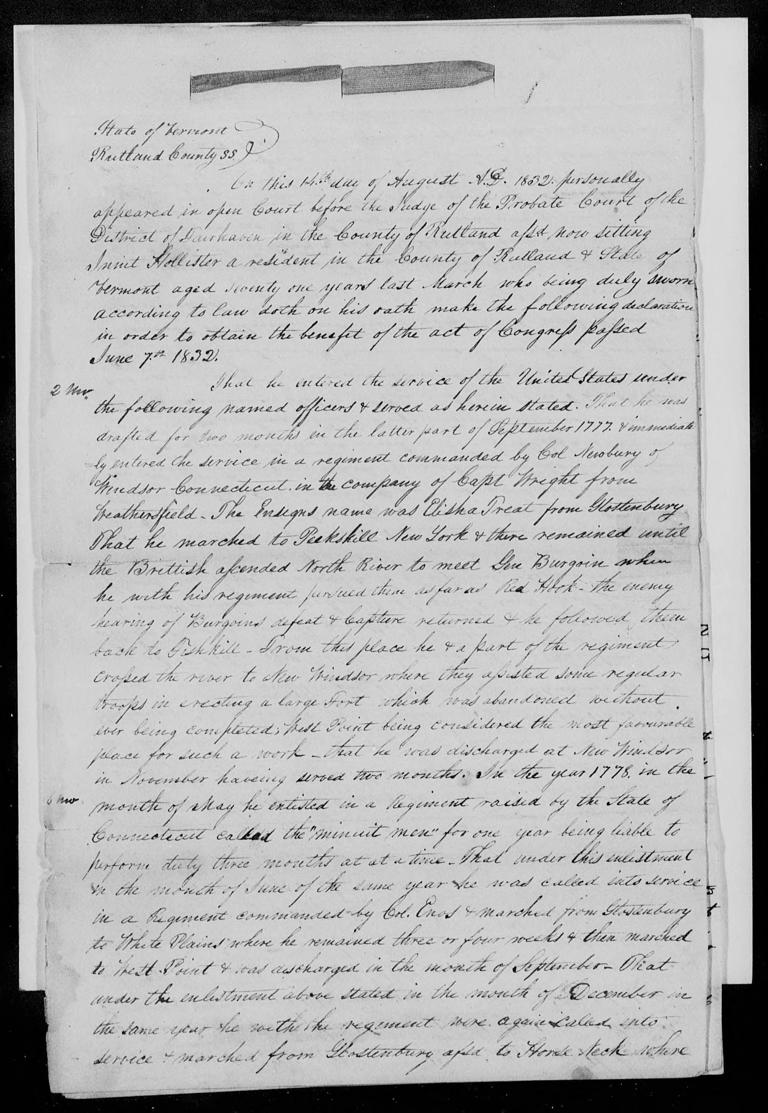 State of Vermont
Rutland County SS
On this 14th day of August A.D. 1832. personally
appeared in open Court before the Judge of the Probate Court of the
District of Fairhaven in the County of Rutland afsd now sitting
Hollister a resident in the County of Rutland & State of
Vermont aged Seventy one years last March who being duly sworn
according to law doth on his oath make the following declaration
in order to obtain the benefit of the act of Congress passed
June 7th 1832.
2 mo.
That he entered the service of the United States under
the following named officers & served as herein stated. That he was
drafted for two months in the latter part of September 1777. & immediate
ly entered the service in a regiment commanded by Col Newbury of
Windsor Connecticut in the company of Capt Wright from
Weathersfield - The Ensigns name was Elisha Treat from Glostenbury
That he marched to Peekskill New York & there remained until
the Brittish ascended North River to meet Gen Burgoin when
he with his regiment pursued them as far as Red Hook - the enemy
hearing of Burgoins defeat & Capture returned & he followed them
back to Fishkill - From this place he & a part of the regiment
crossed the river to New Windsor where they assisted some regular
troops in erecting a large Fort which was abandoned without
ever being completed; West Point being considered the most favourable
place for such a work - that he was discharged at New Windsor
in November haveing served two months. In the year 1778, in the
6 mo
month of May he enlisted in a Regiment raised by the State of
Connecticut called the "minuit men" for one year being liable to
perform duty three months at at a time - That under this enlistment
in the month of June of the same year he was called into service
in a Regiment commanded by Col. Enos & marched from Glostenbury
to White Plains where he remained three or four weeks & then marched
to West Point & was discharged in the month of September - That
under the enlistment above stated in the month of December in
the same year he with the regiment were again called into
service & marched from Glostenbury afsd to Horse Neck where